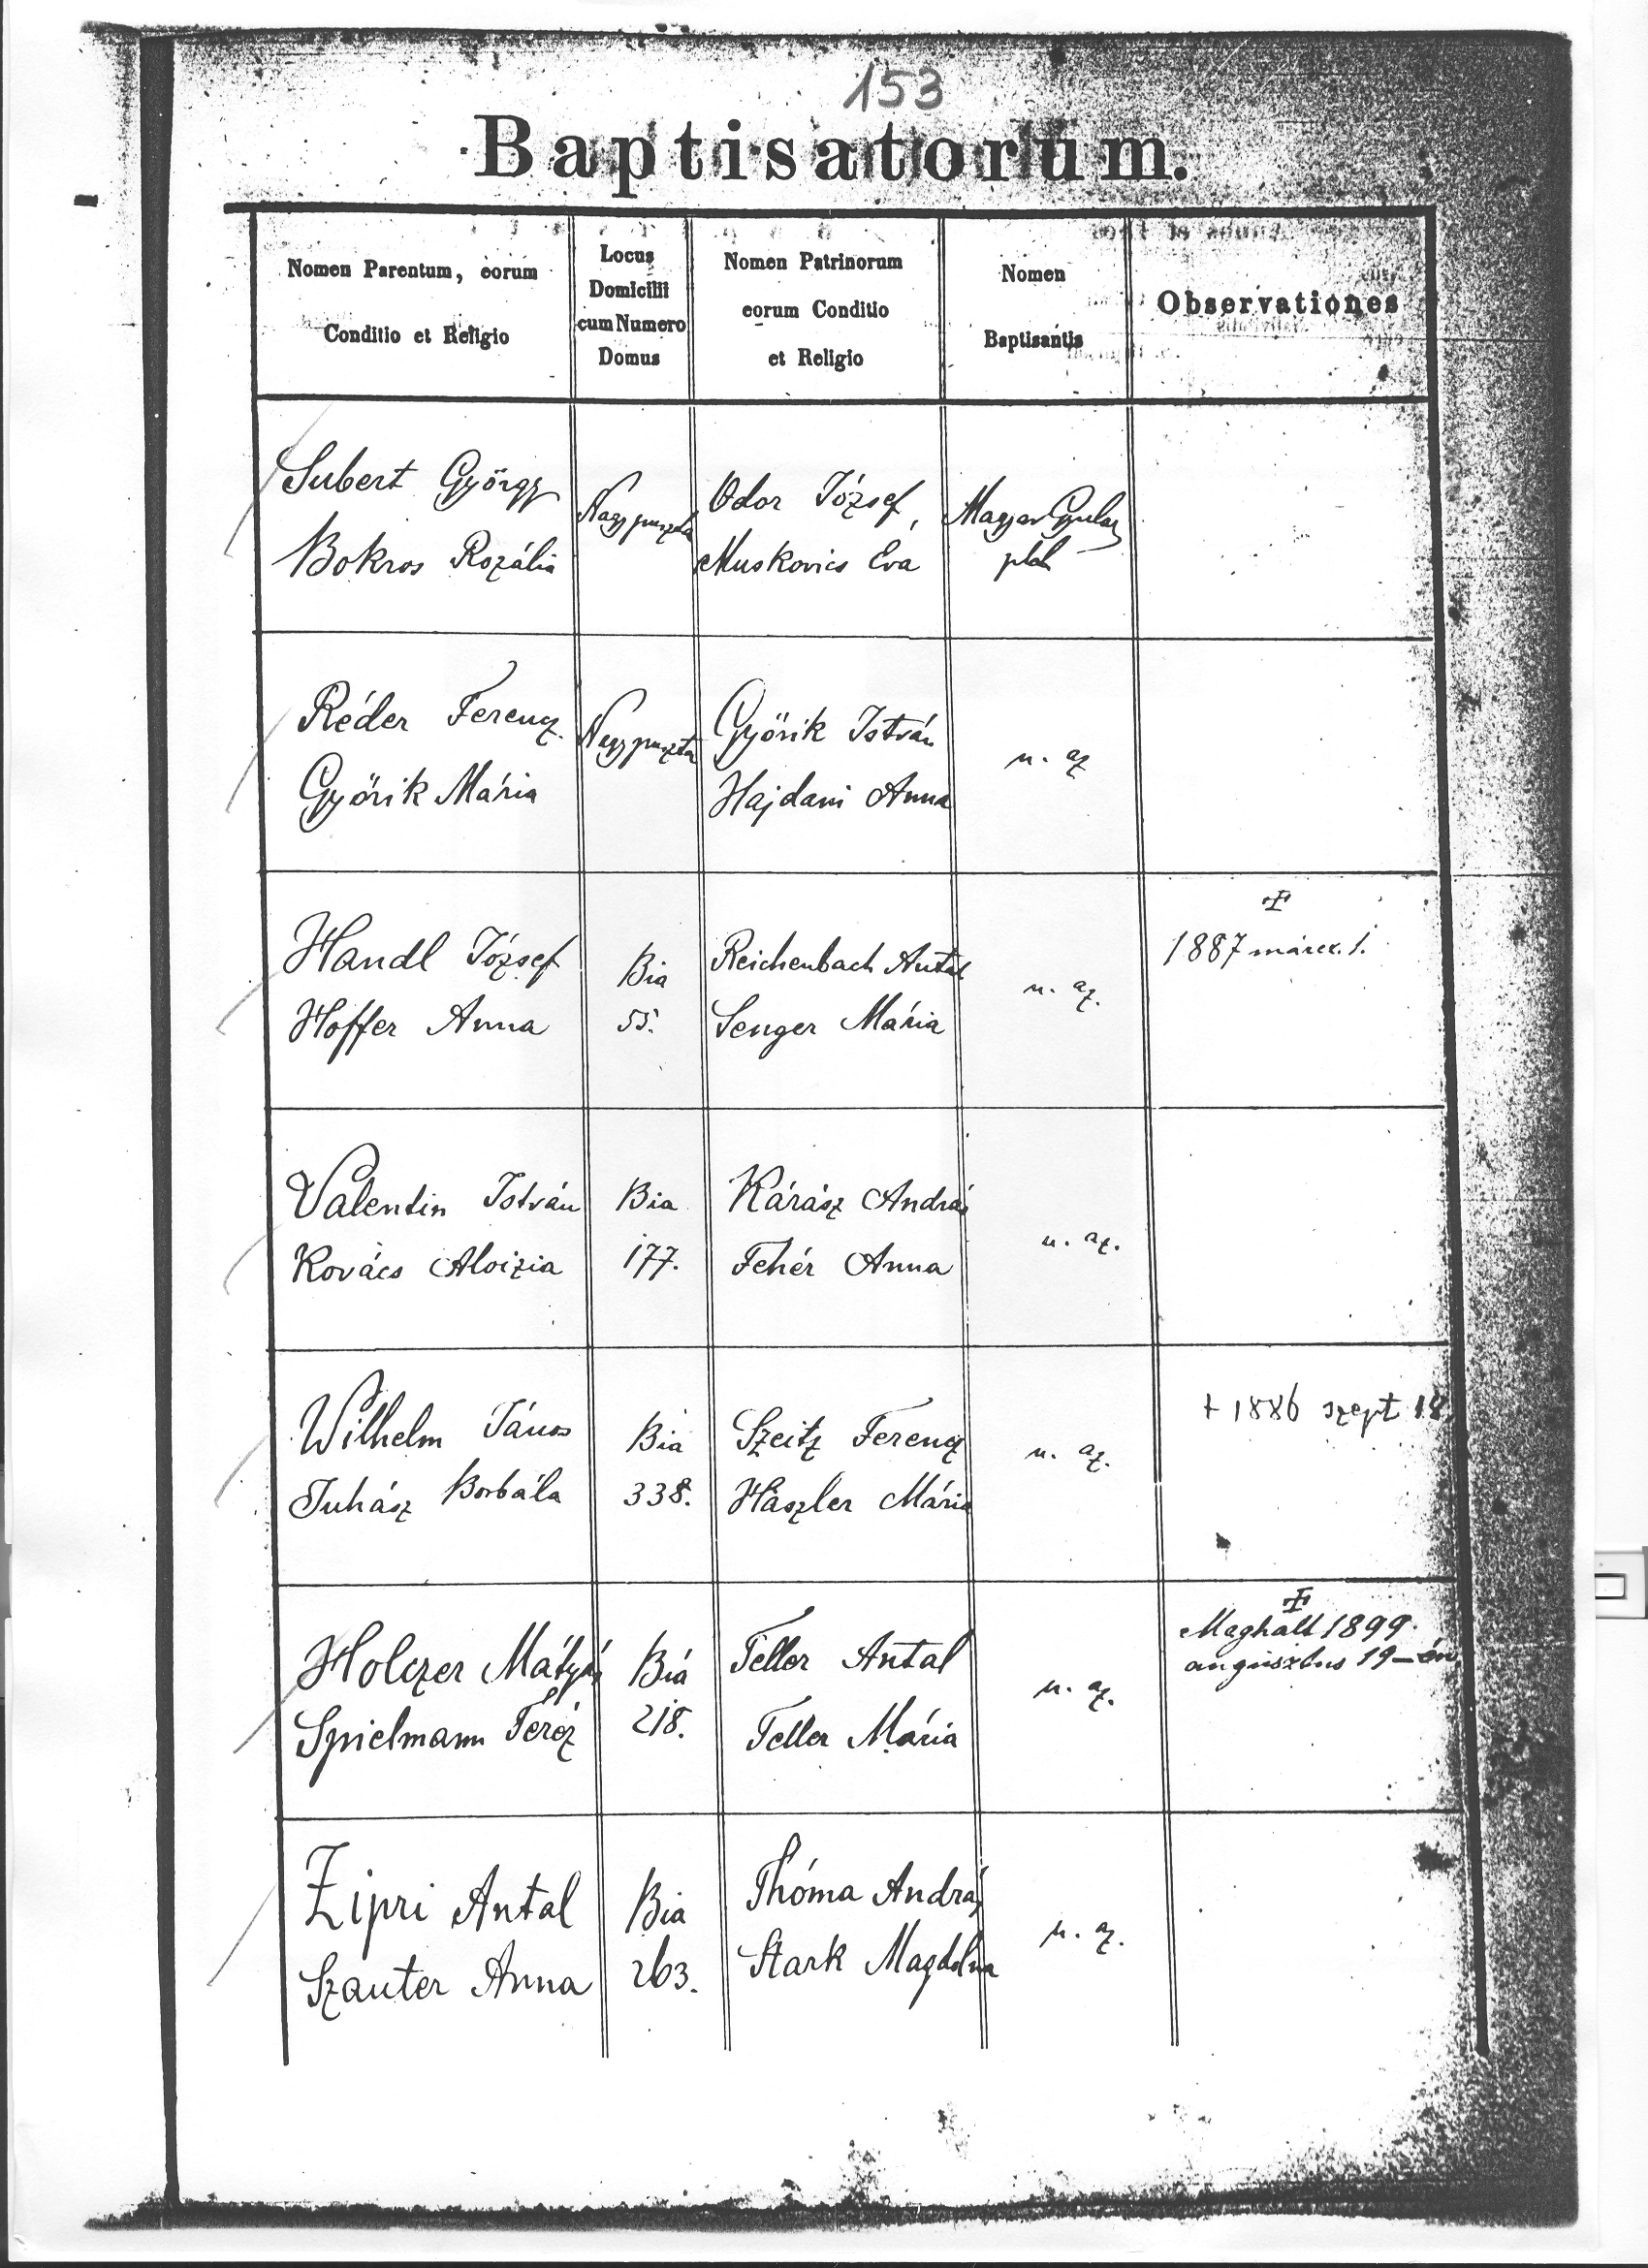 153
Baptisatorum.
Nomen Parentum, eorum
Conditio et Religio
Locus
Domicilii
cum Numero
Domus
Nomen Patrinorum
eorum Conditio
et Religio
Nomen
Baptisantis
Observationes
Subert György
Bokros Rozália
Nagypuszta
Odor József,
Muskovics Éva
Magyar Gyula
plab
Réder Ferencz
Györik Mária
Nagypuszta
Györik István
Hajdani Anna
u. az
Handl József
Hoffer Anna
Bia
55.
Reichenbach Antal
Senger Mária
u. az.
1887 márcz. 1.
Valentin István
Kovács Aloizia
Bia
177.
Kárász András
Fehér Anna
u. az.
Wilhelm János
Juhász Borbála
Bia
338.
Szeitz Ferencz
Hászler Mária
u. az.
+ 1886 szept 18.
Holczer Mátyás
Spielmann Teréz
Bia
218.
Teller Antal
Teller Mária
u. az.
Meghalt 1899.
augusztus 19-én.
Zipri Antal
Szauter Anna
Bia
263.
Thóma András
Stark Magdolna
u. az.